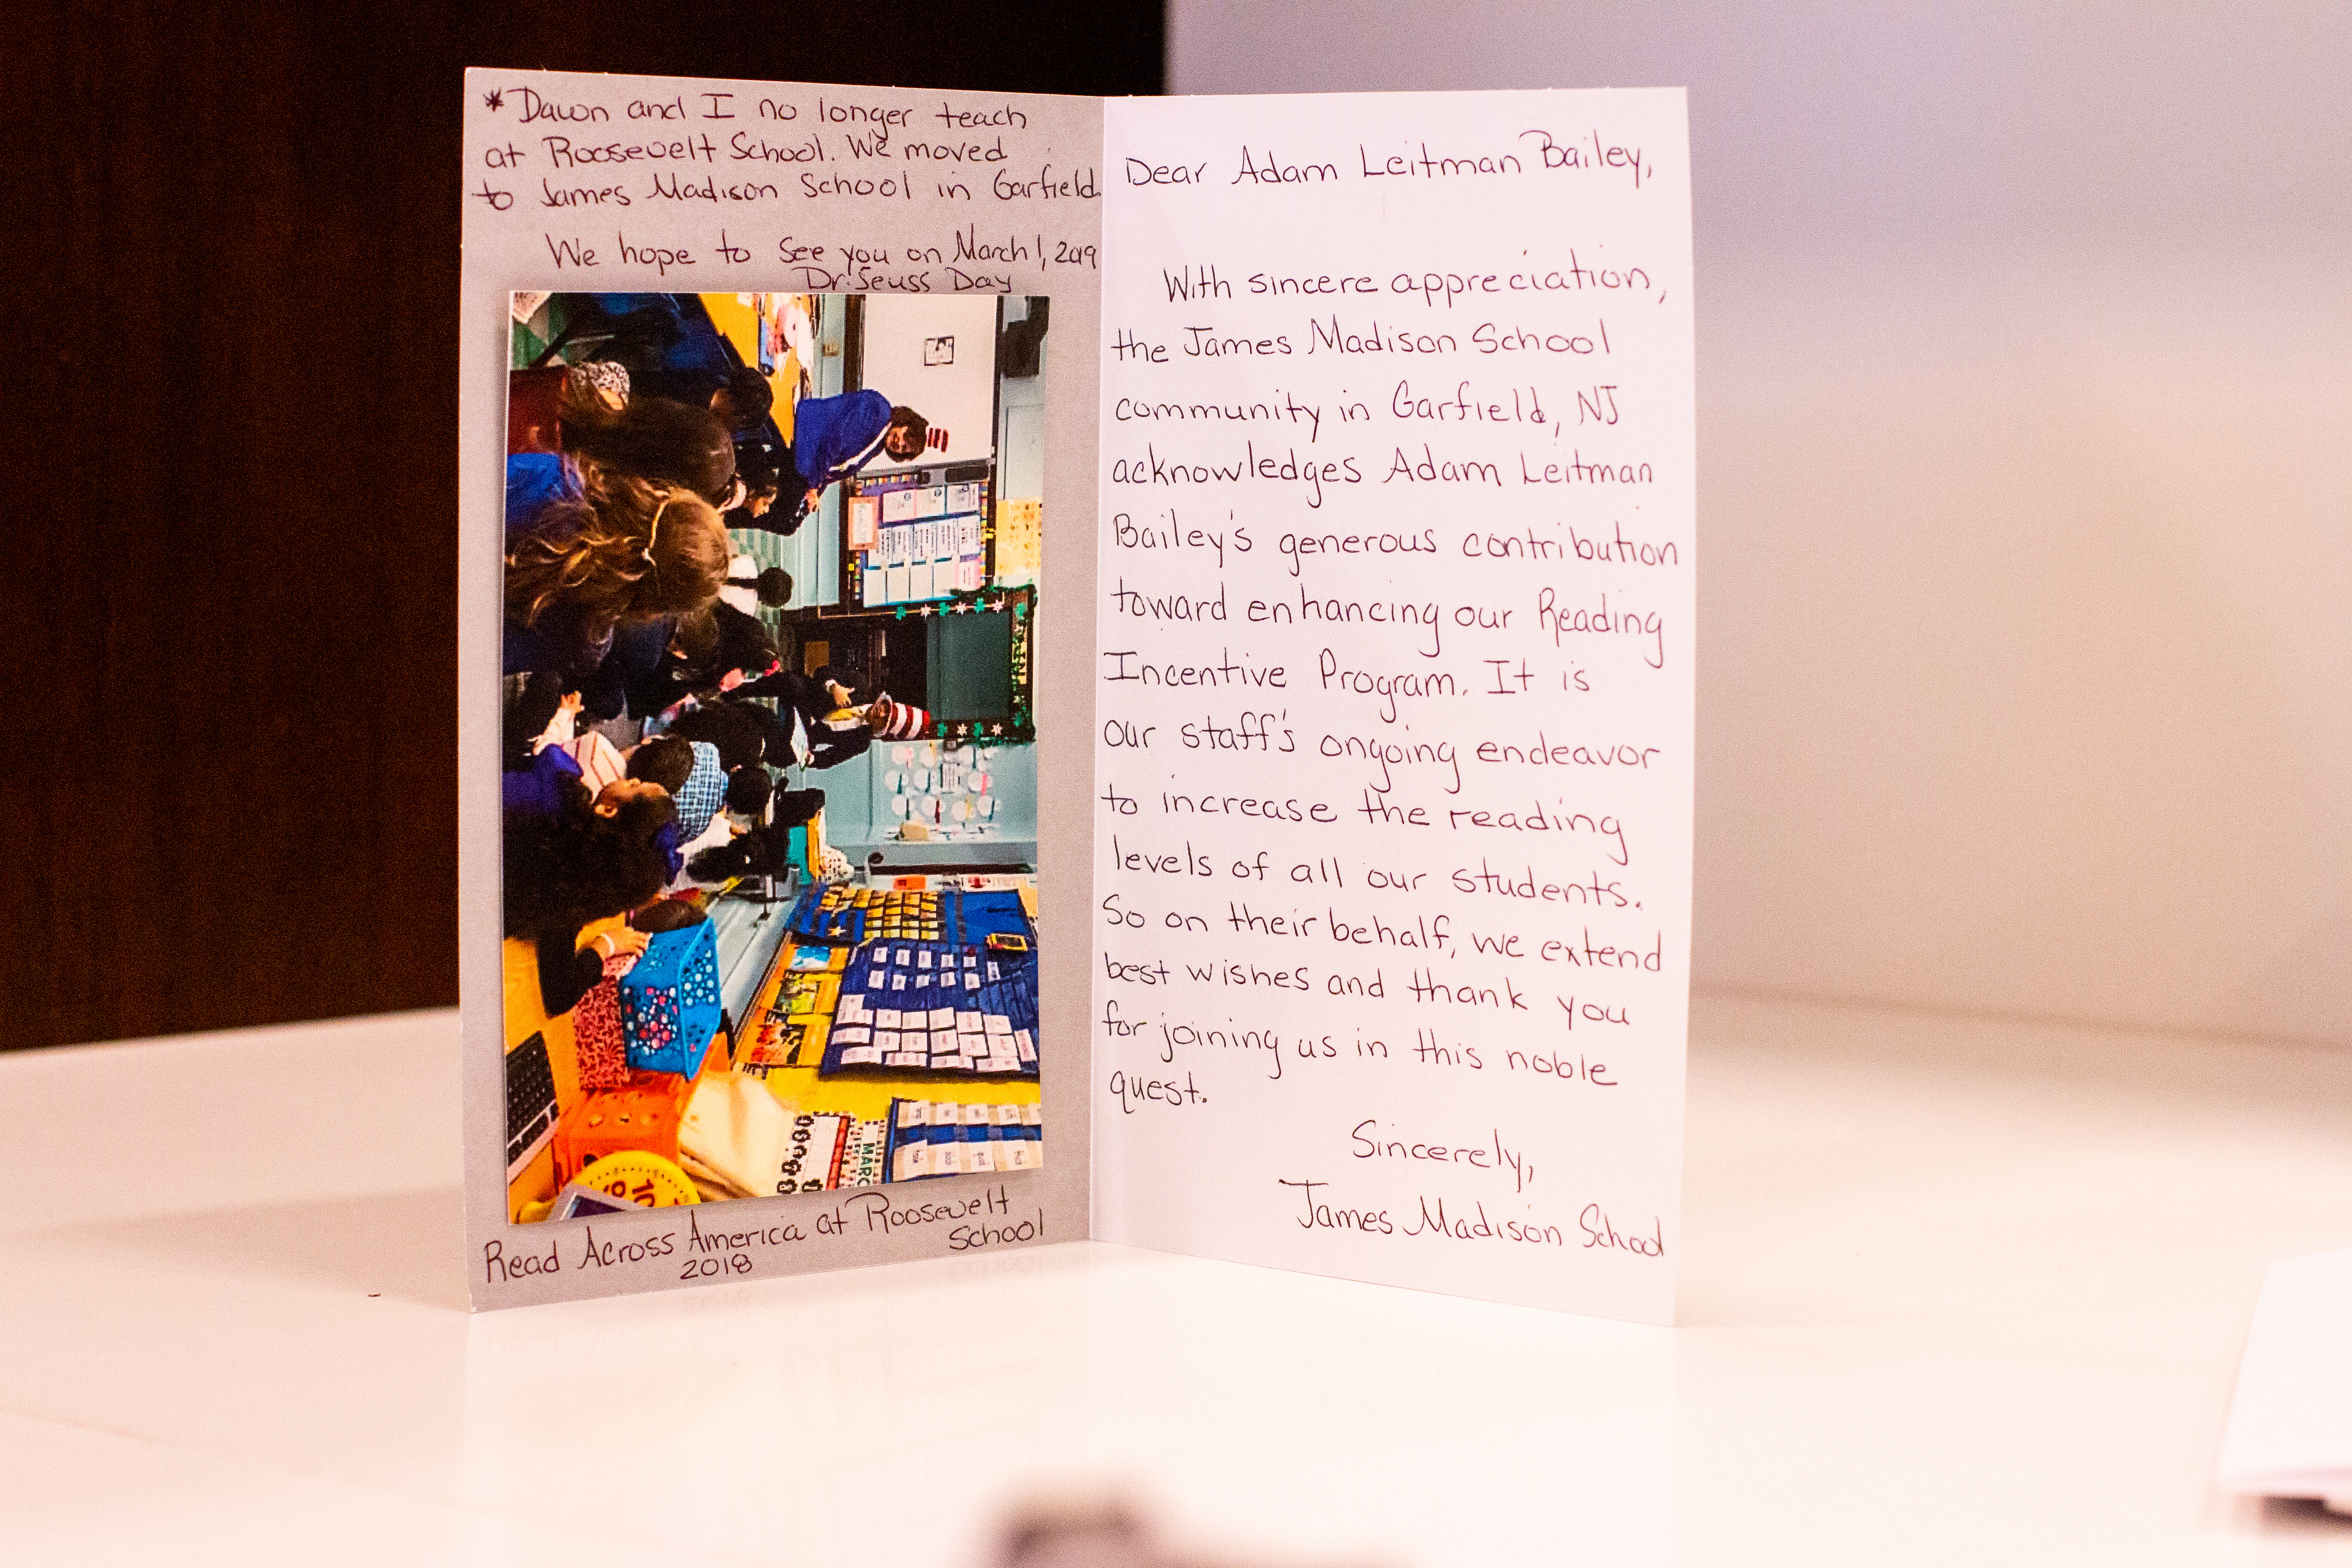 *Dawn and I no longer teach
at Roosevelt School. We moved
to James Madison School in Garfield.
We hope to see you on March 1, 2019
Dr. Seuss Day
MARC
Read Across America at Roosevelt
School
2018
Dear Adam Leitman Bailey,
With sincere appreciation,
the James Madison School
community in Garfield, NJ
acknowledges Adam Leitman
Bailey's generous contribution
toward enhancing our Reading
Incentive Program. It is
our staff's ongoing endeavor
to increase the reading
levels of all our students.
So on their behalf, we extend
best wishes and thank you
for joining us in this noble
quest.
Sincerely,
James Madison School